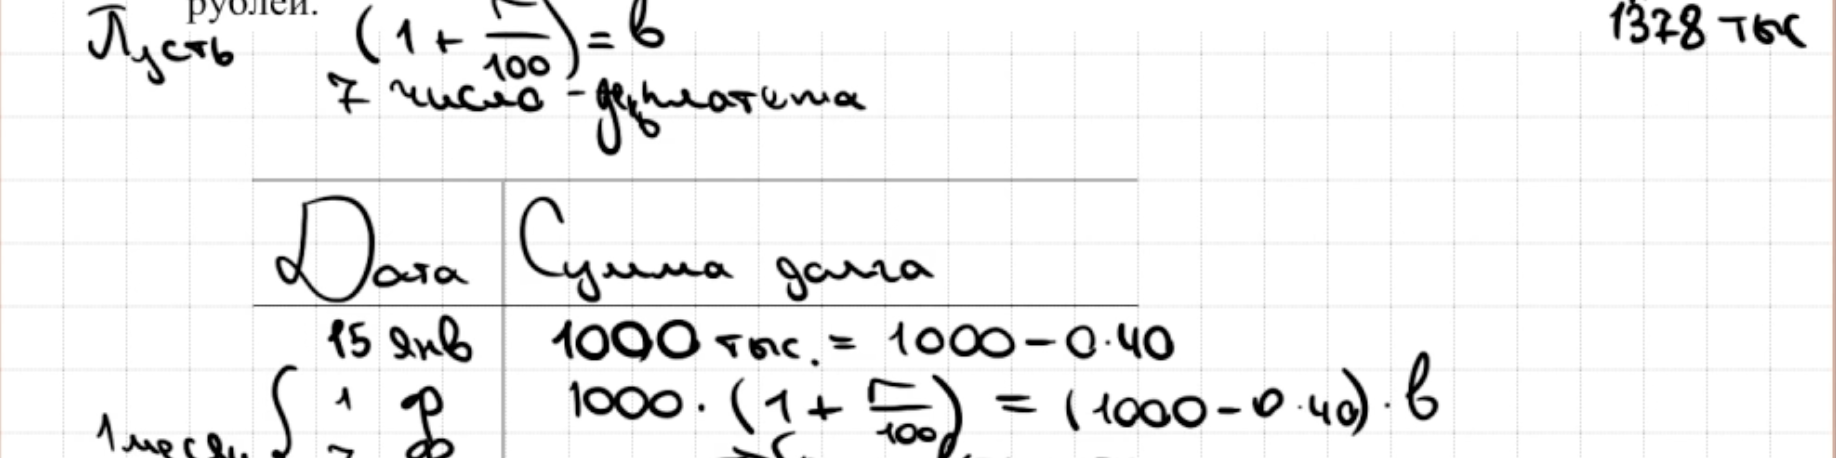 рублей.
Пусть (1 + r/100) = b 1378 тыс
7 число -
Дата Сумма долга
15 янв 1000 тыс. = 1000 - 0·40
1 ф 1000·(1 + r/100) = (1000 - 0·40)·b